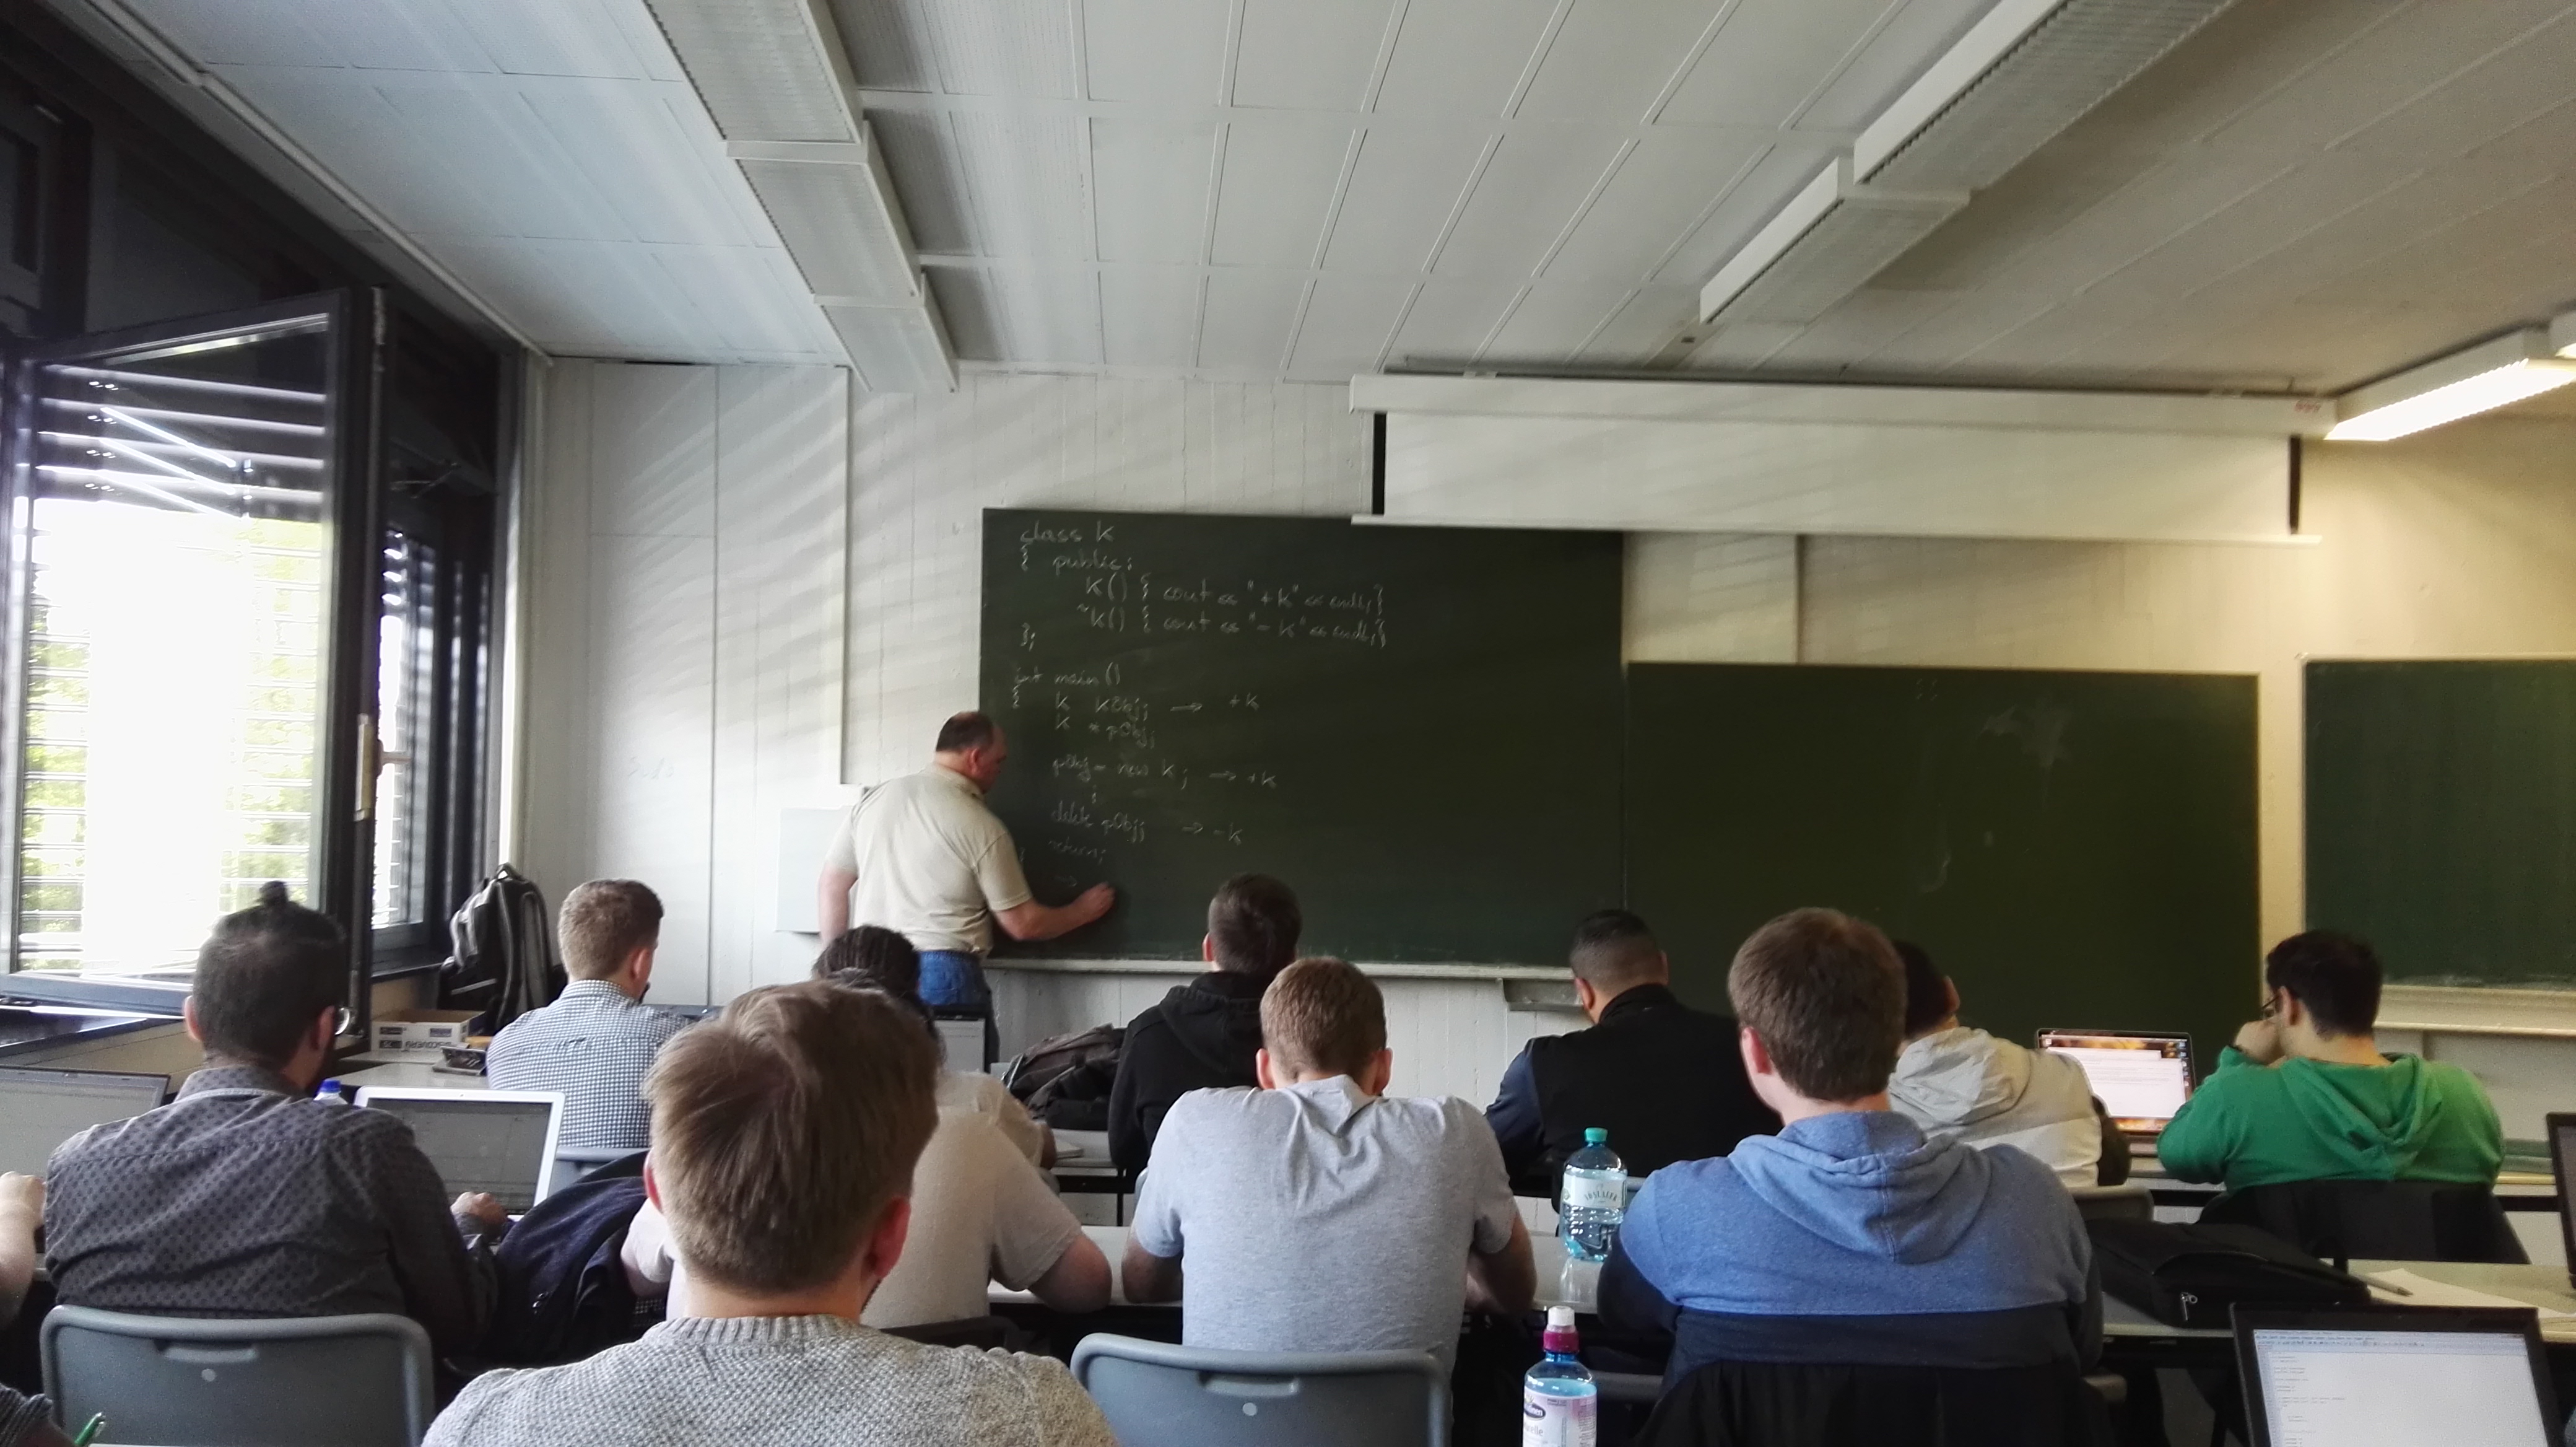 class K
{ public:
K() { cout << "+K" << endl; }
~K() { cout << "-K" << endl; }
};
int main()
{
K kObj; → +K
K *pObj;
pObj = new K; → +K
:
delete pObj; → -K
return;
}
→